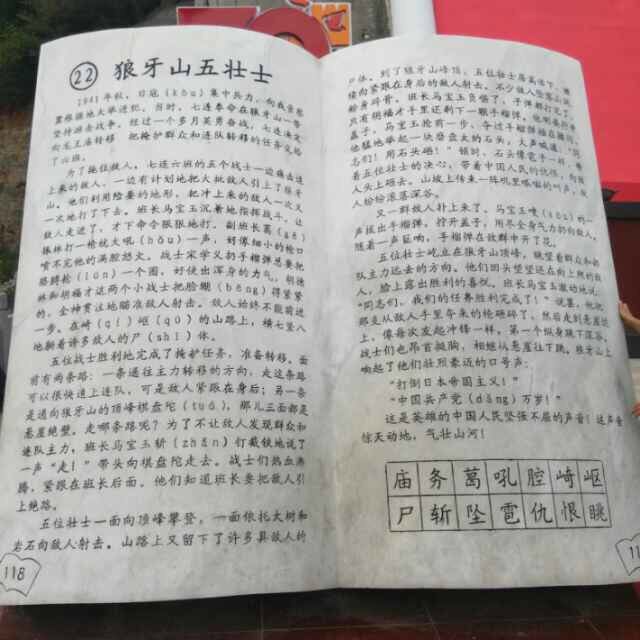 22 狼牙山五壮士
1941年秋，日寇(kòu)集中兵力，向我晋
察冀根据地大举进犯。当时，七连奉命在狼牙山一带
坚持游击战争。经过一个多月英勇奋战，七连决定
向龙王庙转移，把掩护群众和连队转移的任务交给
了六班。
为了拖住敌人，七连六班的五个战士一边痛击追
上来的敌人，一边有计划地把大批敌人引上了狼牙
山。他们利用险要的地形，把冲上来的敌人一次又
一次地打了下去。班长马宝玉沉着地指挥战斗，让
敌人走近了，才下命令狠狠地打。副班长葛(gě)
振林打一枪就大吼(hǒu)一声，好像细小的枪口
喷不完他的满腔怒火。战士宋学义扔手榴弹总要把
胳膊抡(lūn)一个圈，好使出浑身的力气。胡德
林和胡福才这两个小战士把脸绷(běng)得紧紧
的，全神贯注地瞄准敌人射击。敌人始终不能前进
一步。在崎(qí)岖(qū)的山路上，横七竖八
地躺着许多敌人的尸(shī)体。
五位战士胜利地完成了掩护任务，准备转移。面
前有两条路：一条通往主力转移的方向，走这条路
可以很快追上连队，可是敌人紧跟在身后；另一条
是通向狼牙山的顶峰棋盘陀(tuó)，那儿三面都是
悬崖绝壁。走哪条路呢？为了不让敌人发现群众和
连队主力，班长马宝玉斩(zhǎn)钉截铁地说了
一声“走！”带头向棋盘陀走去。战士们热血沸
腾，紧跟在班长后面。他们知道班长要把敌人引
上绝路。
五位壮士一面向顶峰攀登，一面依托大树和
岩石向敌人射击。山路上又留下了许多具敌人的
118
尸体。到了狼牙山峰顶，五位壮士居高临下，继
续向紧跟在身后的敌人射击。不少敌人坠落山涧，
粉身碎骨。班长马宝玉负伤了，子弹都打完了，
只有胡福才手里还剩下一颗手榴弹，他刚要拧开
盖子，马宝玉抢前一步，夺过手榴弹插在腰间，
他猛地举起一块磨盘大的石头，大声喊道：“同
志们！用石头砸！”顿时，石头像雹子一样，带
着五位壮士的决心，带着中国人民的仇恨，向敌
人头上砸去。山坡上传来一阵叽里呱啦的叫声，敌
人纷纷滚落深谷。
又一群敌人扑上来了。马宝玉嗖(sōu)的一
声拔出手榴弹，拧开盖子，用尽全身气力扔向敌人。
随着一声巨响，手榴弹在敌群中开了花。
五位壮士屹立在狼牙山顶峰，眺望着群众和部
队主力远去的方向。他们回头望望还在向上爬的敌
人，脸上露出胜利的喜悦。班长马宝玉激动地说：
“同志们，我们的任务胜利完成了！”说罢，他把
那支从敌人手里夺来的枪砸碎了，然后走到悬崖边
上，像每次发起冲锋一样，第一个纵身跳下深谷。
战士们也昂首挺胸，相继从悬崖往下跳。狼牙山上
响起了他们壮烈豪迈的口号声：
“打倒日本帝国主义！”
“中国共产党(dǎng)万岁！”
这是英雄的中国人民坚强不屈的声音！这声音
惊天动地，气壮山河！
庙务葛吼腔崎岖
尸斩坠雹仇恨眺